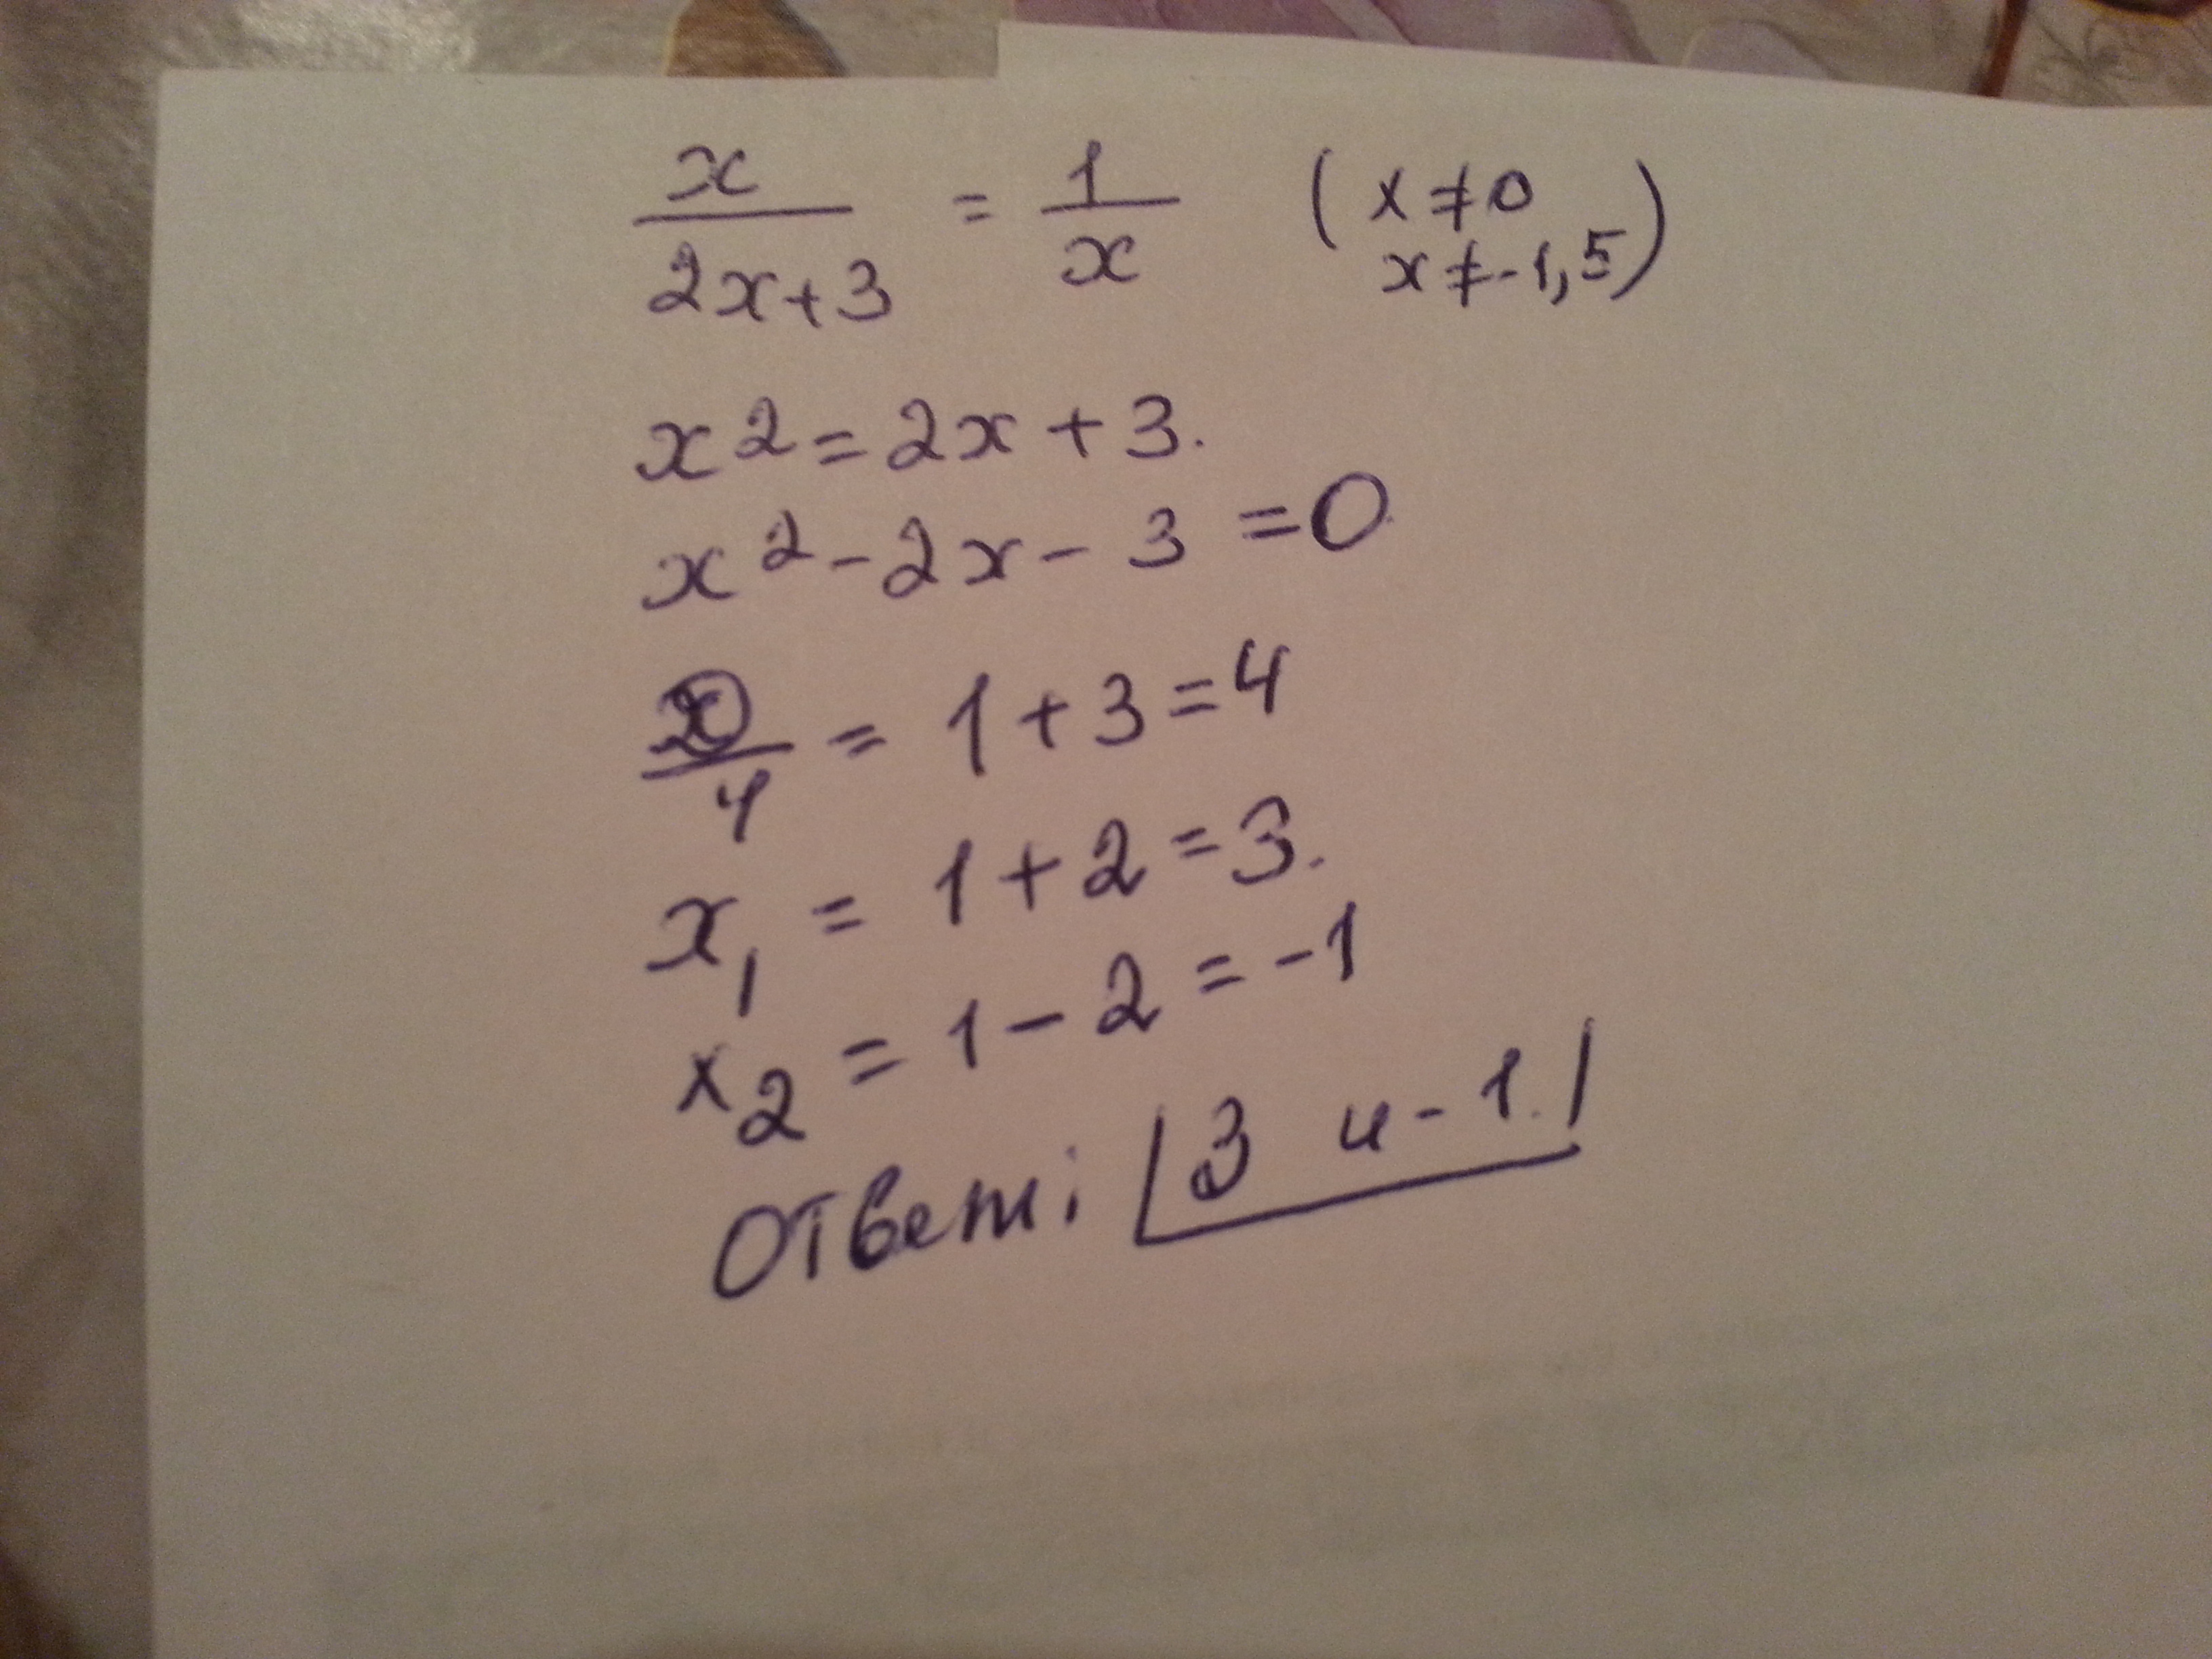 x/(2x+3) = 1/x (x≠0 x≠-1,5)
x² = 2x + 3.
x² - 2x - 3 = 0
D/4 = 1 + 3 = 4
x₁ = 1 + 2 = 3.
x₂ = 1 - 2 = -1
Ответ: 3 и -1.